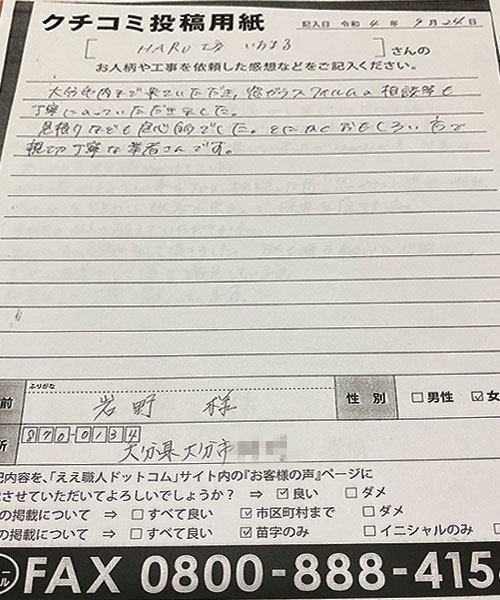 クチコミ投稿用紙
記入日 令和 4 年 9月24日
HARU工房 いわまる さんの
お人柄や工事を依頼した感想などをご記入ください。
大分市内まで来ていただき、窓ガラスフィルムの相談等も
丁寧に いただきました。
見積りなども良心的でした。とにかくおもしろい方で
親切丁寧な業者さんです。
ふりがな
前 岩野 様 性別 □男性 ☑女
所 870-0134
大分県大分市
記内容を、「ええ職人ドットコム」サイト内の『お客様の声』ページに
させていただいてよろしいでしょうか？ ⇒ ☑良い □ダメ
の掲載について ⇒ □すべて良い ☑市区町村まで □ダメ
の掲載について ⇒ □すべて良い ☑苗字のみ □イニシャルのみ
ール FAX 0800-888-4158